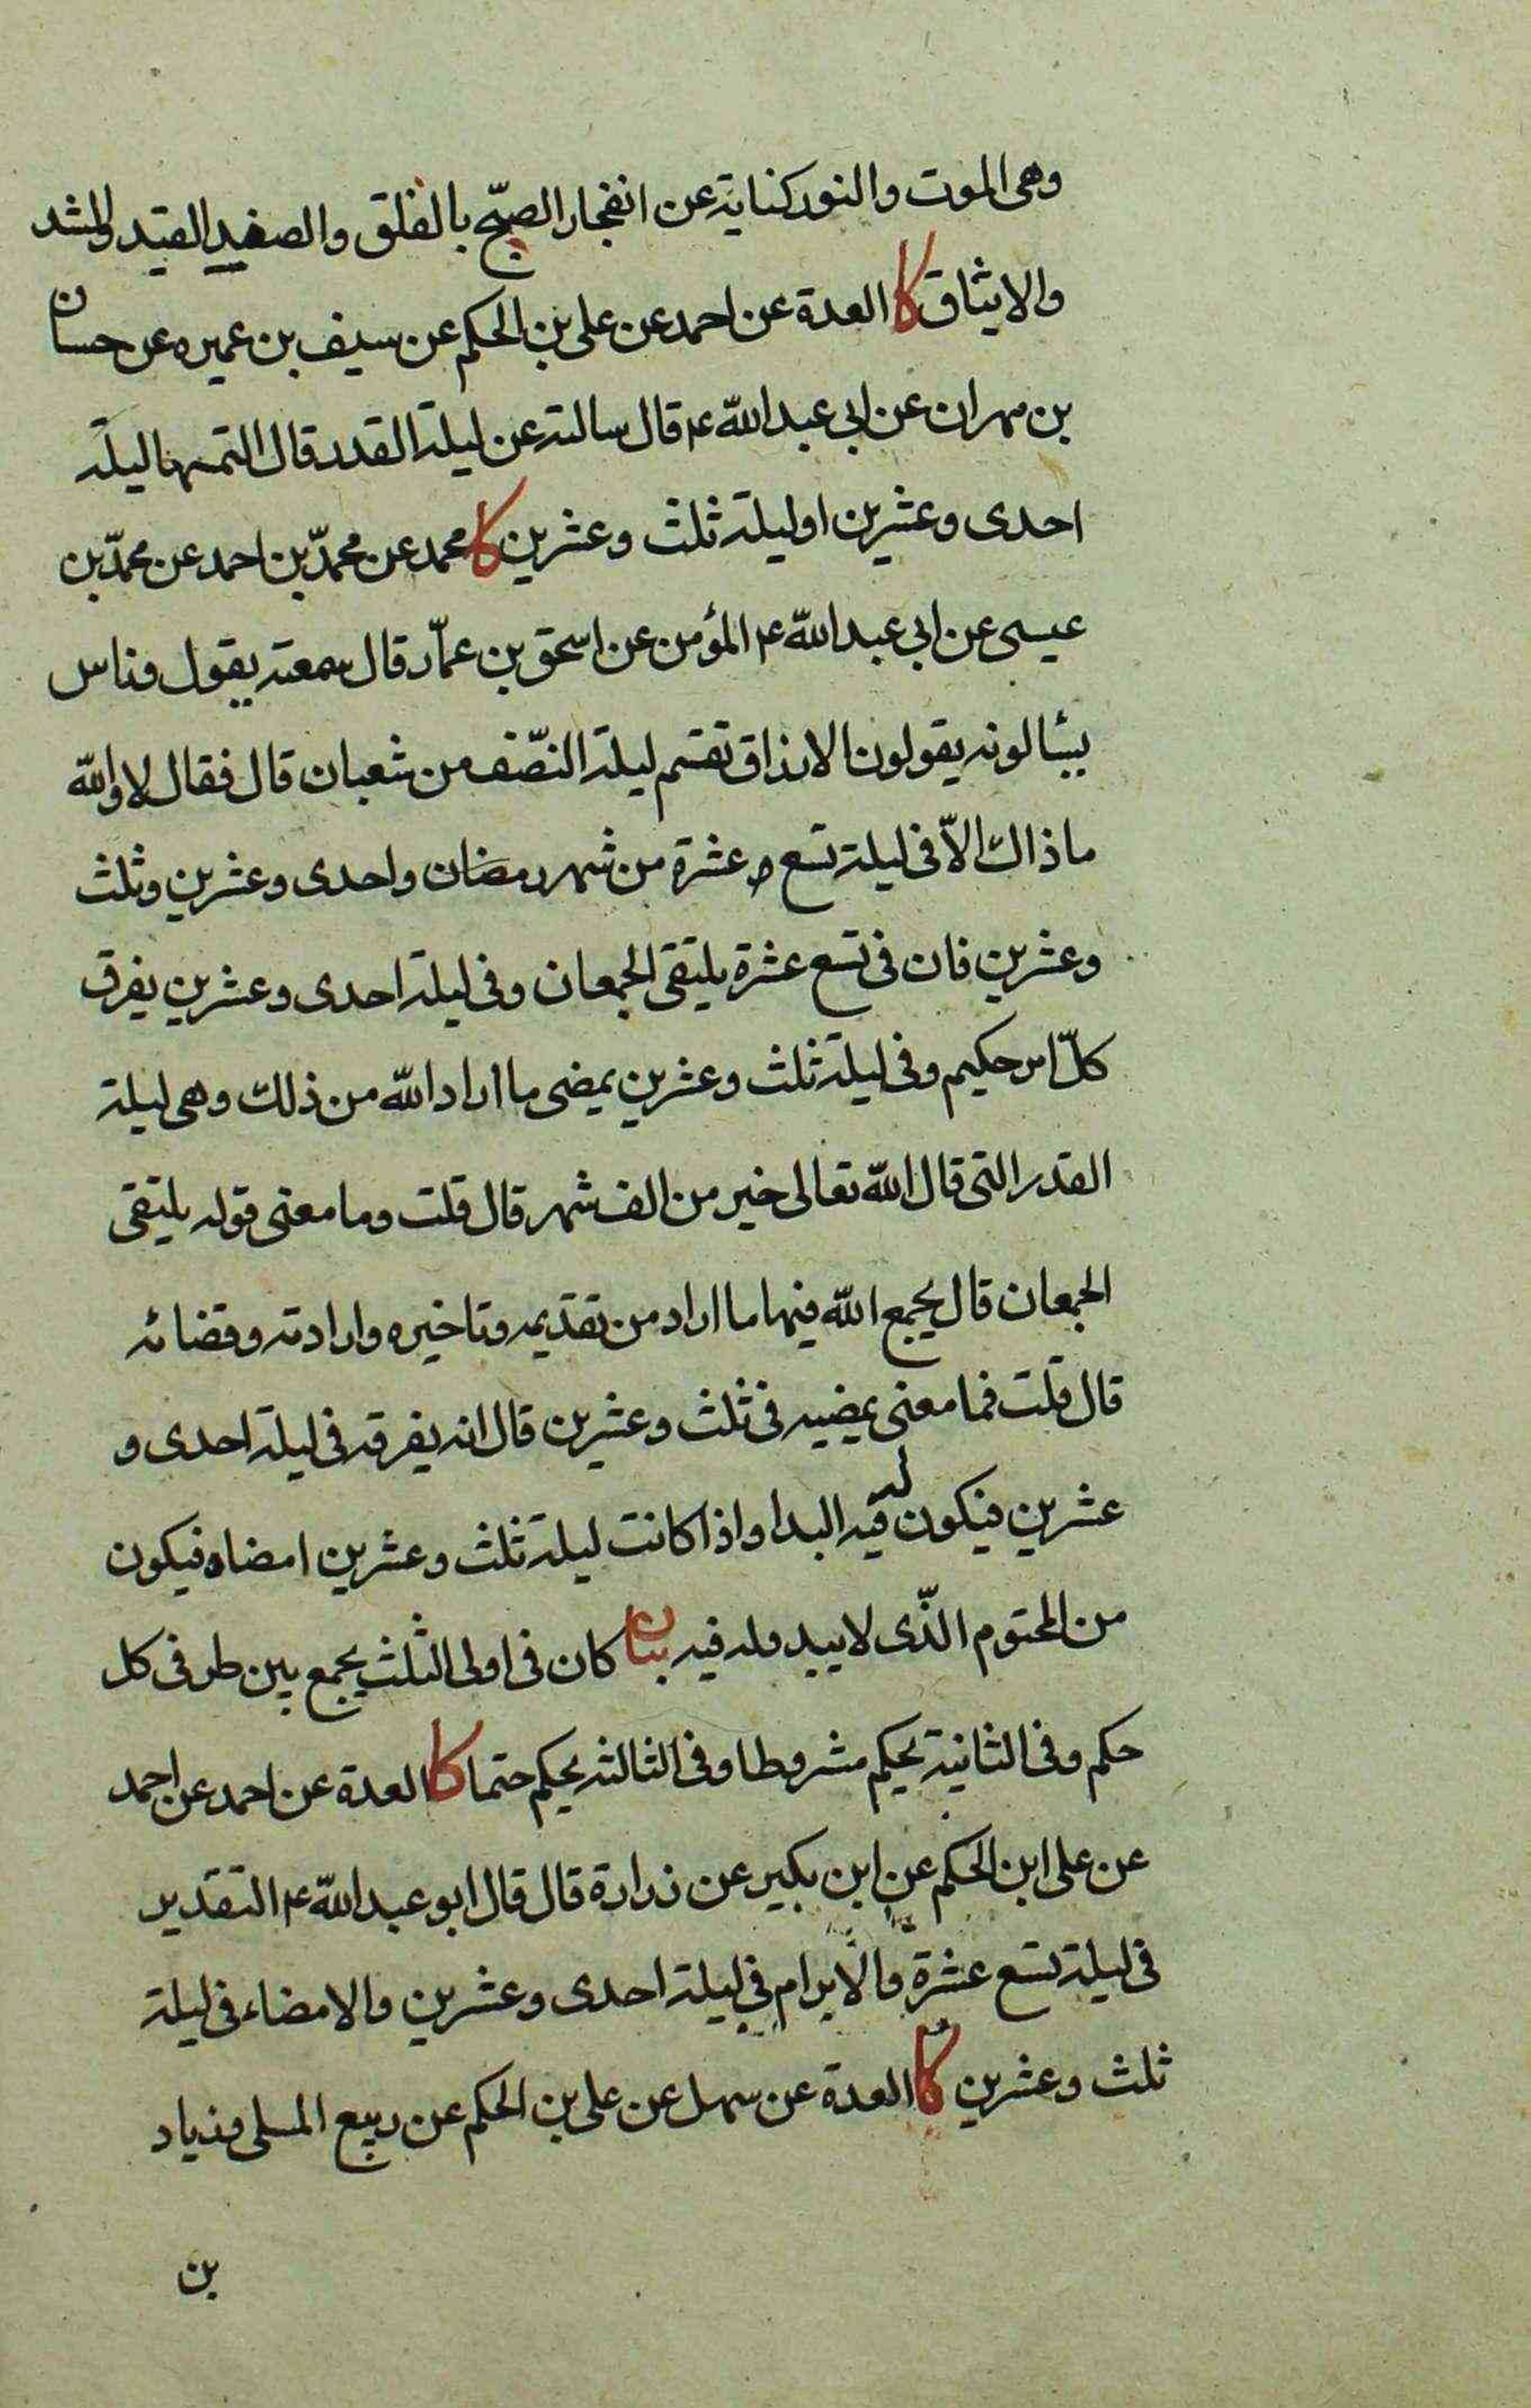 وهى الموت والنور كناية عن انفجار الصبّح بالفلق والصفيد القيد والشد
والايثاق كا العدة عن احمد عن على بن الحكم عن سيف بن عميره عن حسان
بن مهران عن ابى عبد اللّه ع قال سالته عن ليلة القدر قال التمسها ليلة
احدى وعشرين او ليلة ثلث وعشرين كا محمد عن محمّد بن احمد عن محمّد بن
عيسى عن ابى عبد اللّه ع المؤمن عن اسحق بن عمّار قال سمعته يقول وناس
يسٔالونه يقولون الارزاق تقسم ليلة النصّف من شعبان قال فقال لا واللّه
ما ذاك الاّ فى ليلة تسع عشرة من شهر رمضان واحدى وعشرين وثلث
وعشرين فان فى تسع عشرة يلتقى الجمعان وفى ليلة احدى وعشرين يفرق
كلّ امر حكيم وفى ليلة ثلث وعشرين يمضى ما اراد اللّه من ذلك وهى ليلة
القدر التى قال اللّه تعالى خير من الف شهر قال قلت وما معنى قوله يلتقى
الجمعان قال يجمع اللّه فيها ما اراد من تقديمه وتاخيره وارادته وقضائه
قال قلت فما معنى يمضيه فى ثلث وعشرين قال انه يفرقه فى ليلة احدى و
عشرين فيكون له فيه البدا واذا كانت ليلة ثلث وعشرين امضاه فيكون
من المحتوم الذّى لا يبدو له فيه بيان كان فى اولى الثلث يجمع بين طرفى كل
حكم وفى الثانية يحكم مشروطا وفى الثالثه يحكم حتما كا العدة عن احمد عن احمد
عن على ابن الحكم عن ابن بكير عن زرارة قال قال ابو عبد اللّه ع التقدير
فى ليلة تسع عشرة والابرام فى ليلة احدى وعشرين والامضاء فى ليلة
ثلث وعشرين كا العدة عن سهل عن على بن الحكم عن ربيع المسلى وزياد
بن